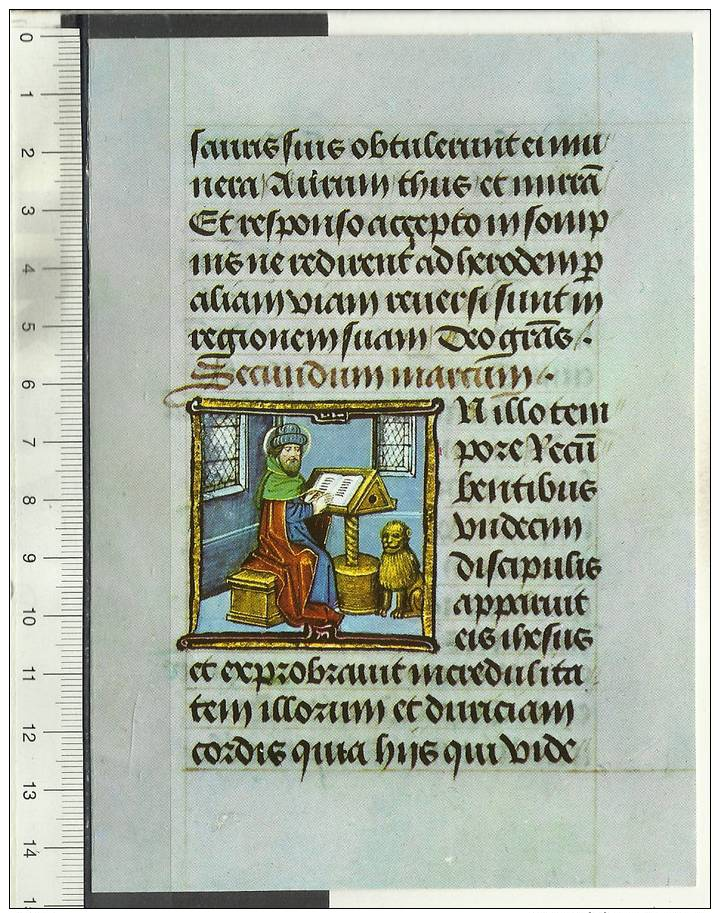 sauris suis obtulerunt ei mu
nera Aurum thus et mirrã
Et responso accepto in somp
nis ne redirent ad herodem ꝑ
aliam viam reuersi sunt in
regionem suam Deo grãs.
Secundum marcum.
N illo tem
pore Recũ
bentibus
vndecim
discipulis
apparuit
eis ihesus
et exprobrauit incredulita
tem illorum et duriciam
cordis quia hijs qui vide
0
1
2
3
4
5
6
7
8
9
10
11
12
13
14